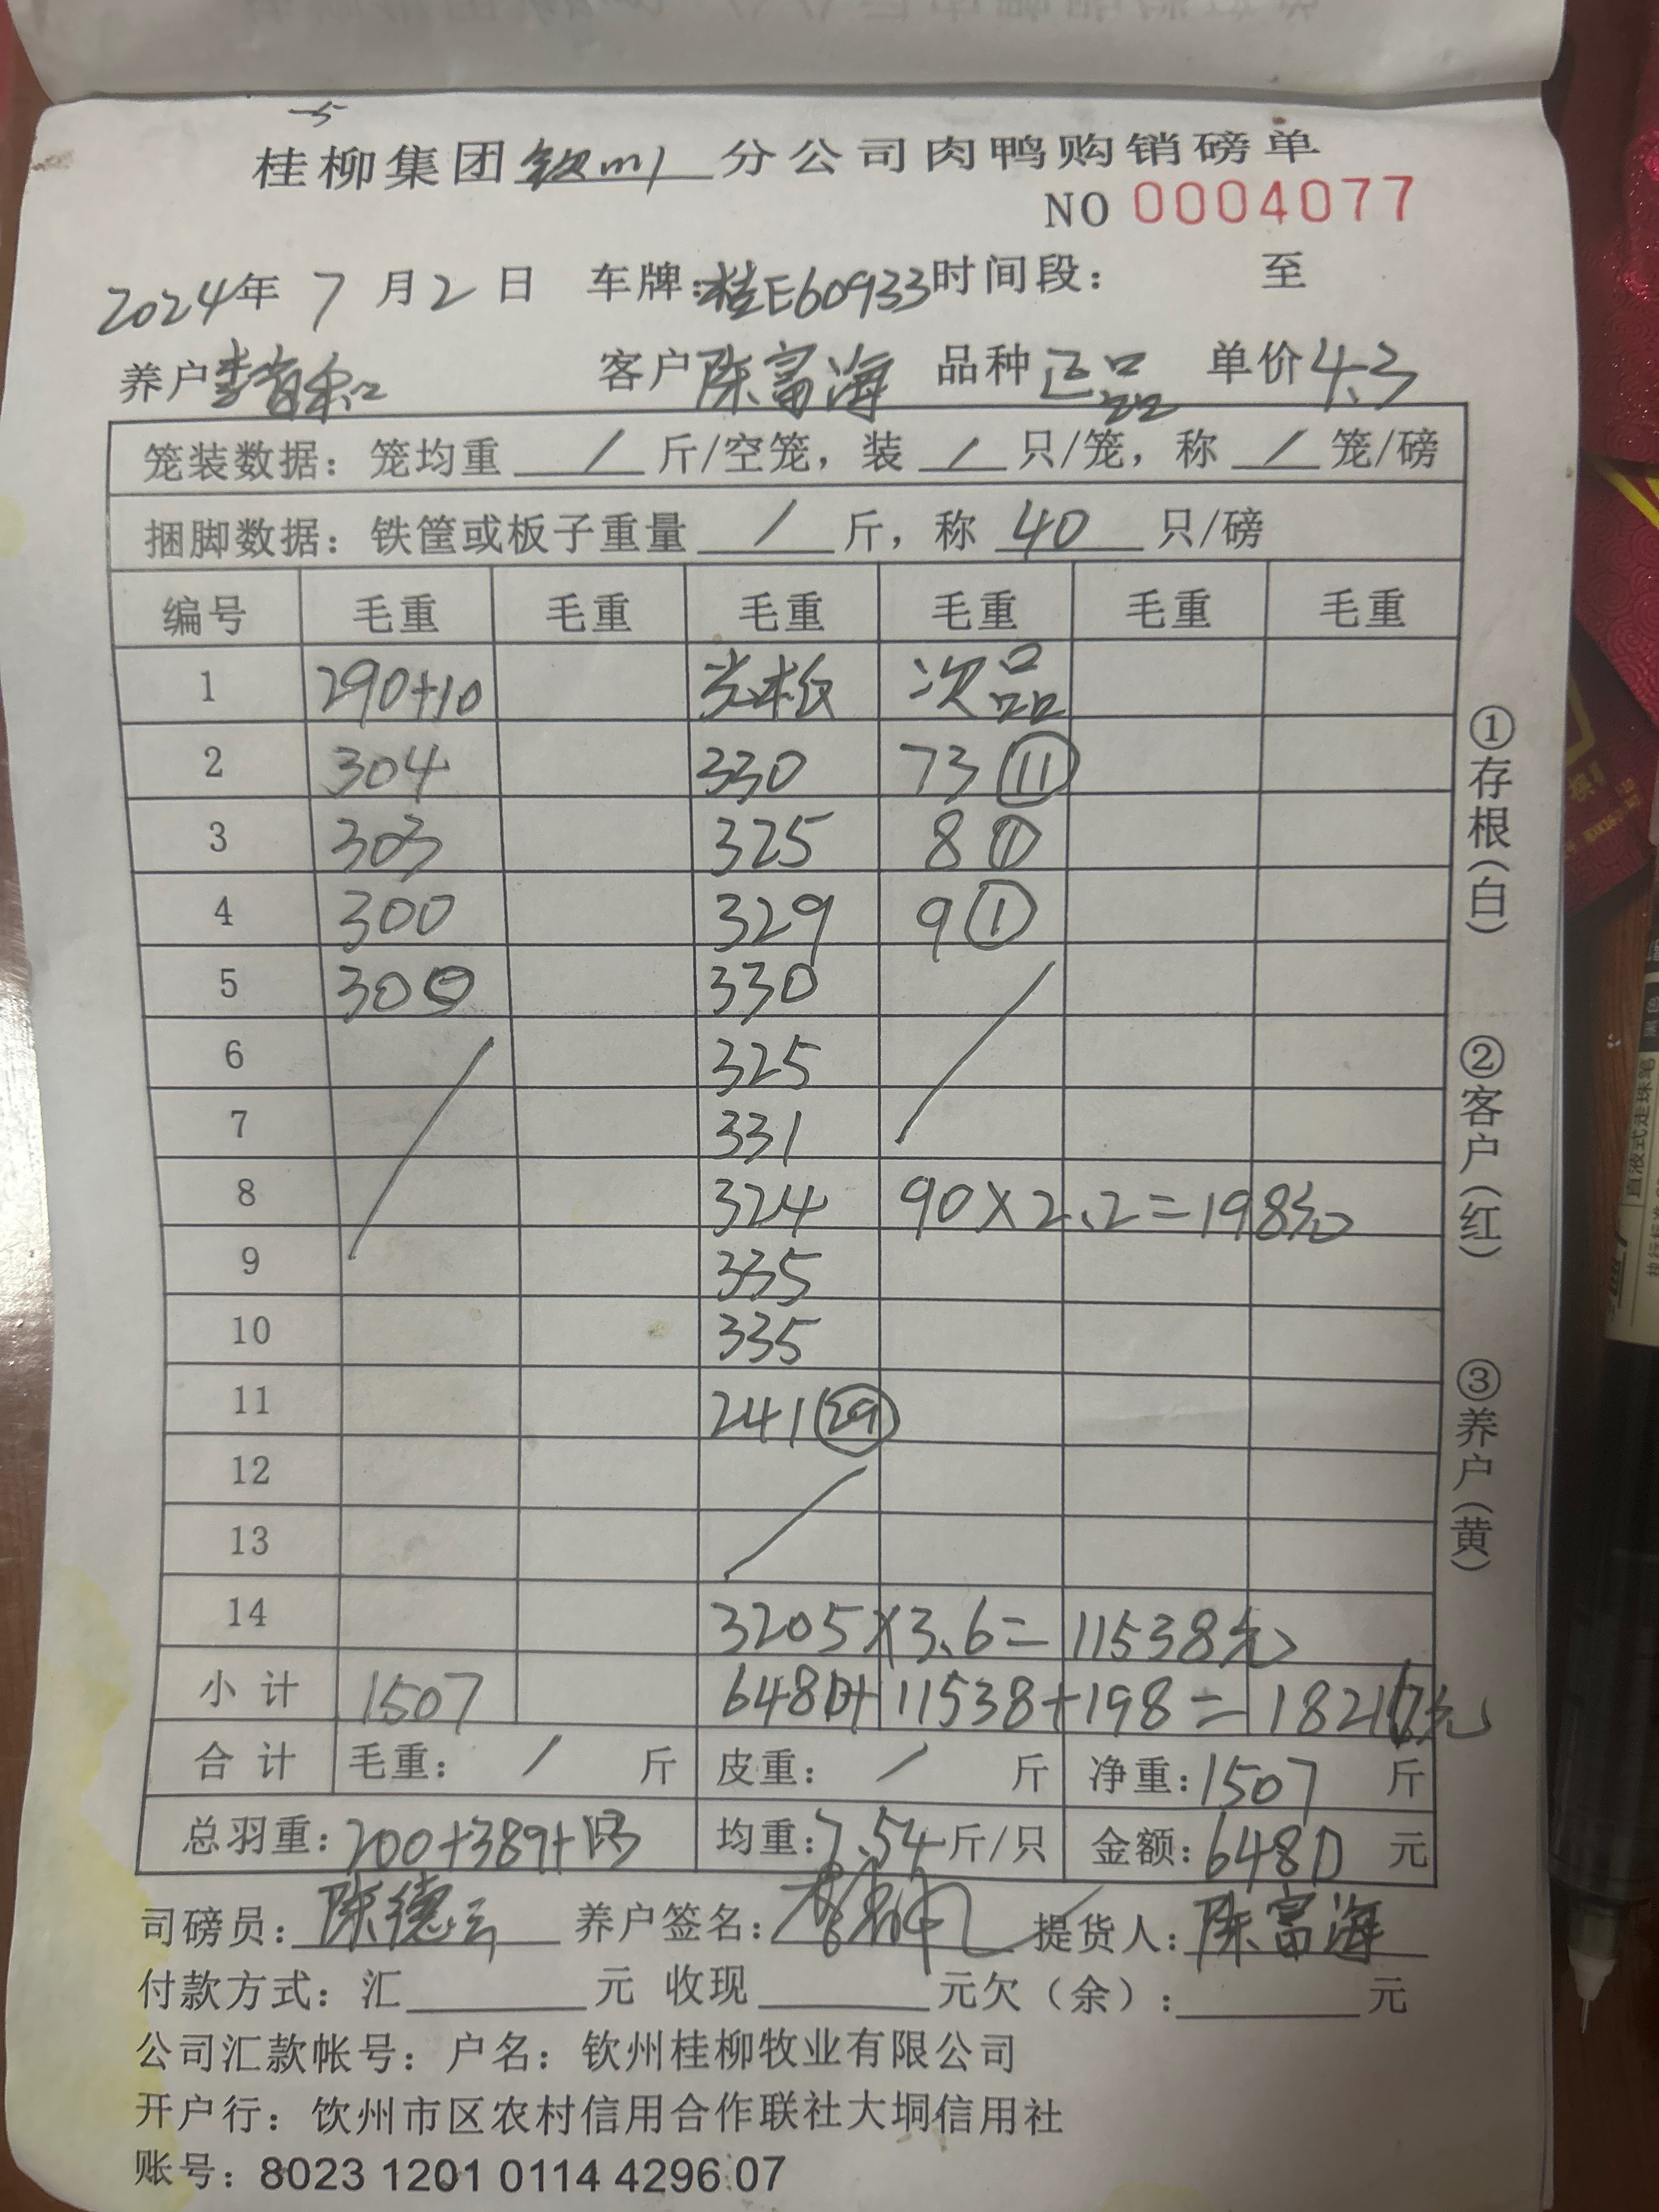 桂柳集团钦州分公司肉鸭购销磅单
NO 0004077
2024年7月2日 车牌:桂E60933时间段: 至
养户李有和 客户陈富海 品种正品 单价4.3
笼装数据:笼均重 / 斤/空笼,装 / 只/笼,称 / 笼/磅
捆脚数据:铁筐或板子重量 / 斤,称 40 只/磅
编号 毛重 毛重 毛重 毛重 毛重 毛重
1 290+10 光板 次品
2 304 330 73 ⑪
3 303 325 8 ①
4 300 329 9 ①
5 300 330
6 325
7 331
8 324 90×2.2=198元
9 335
10 335
11 241 ㉙
12
13
14 3205×3.6=11538元
小计 1507 6480+11538+198=18216元
合计 毛重: / 斤 皮重: / 斤 净重:1507 斤
总羽重:200+389+13 均重:7.54斤/只 金额:6480 元
司磅员:陈德云 养户签名: 提货人:陈富海
付款方式:汇 元 收现 元欠(余): 元
公司汇款帐号:户名:钦州桂柳牧业有限公司
开户行:饮州市区农村信用合作联社大垌信用社
账号:8023 1201 0114 4296 07
①存根(白) ②客户(红) ③养户(黄)
直液式走珠笔